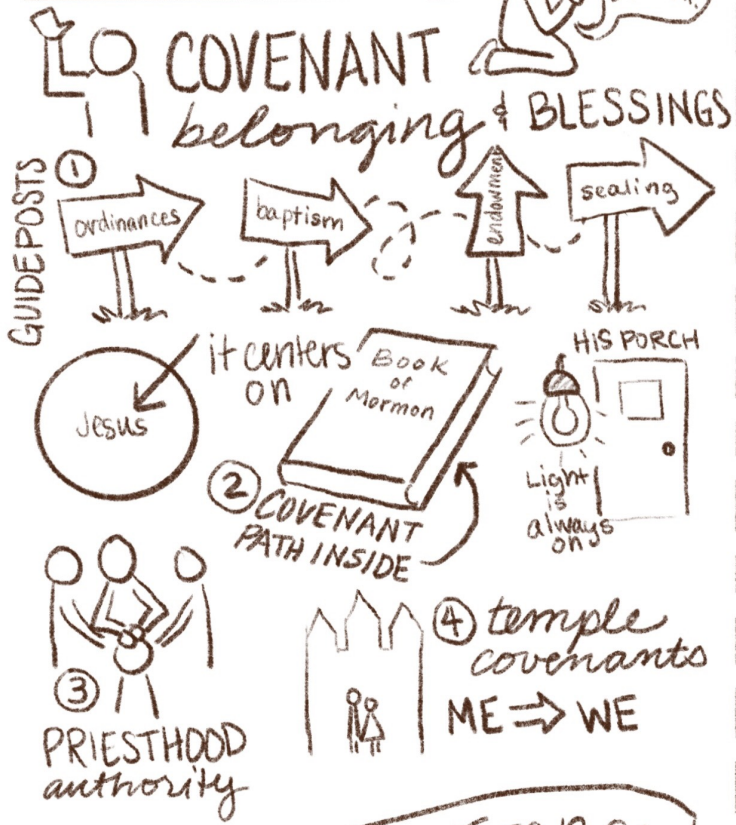 COVENANT
belonging & BLESSINGS
GUIDEPOSTS
1
ordinances
baptism
endowment
sealing
Jesus
it centers
on
Book
of
Mormon
2
COVENANT
PATH INSIDE
HIS PORCH
Light
is
always
on
3
PRIESTHOOD
authority
4
temple
covenants
ME ⇒ WE